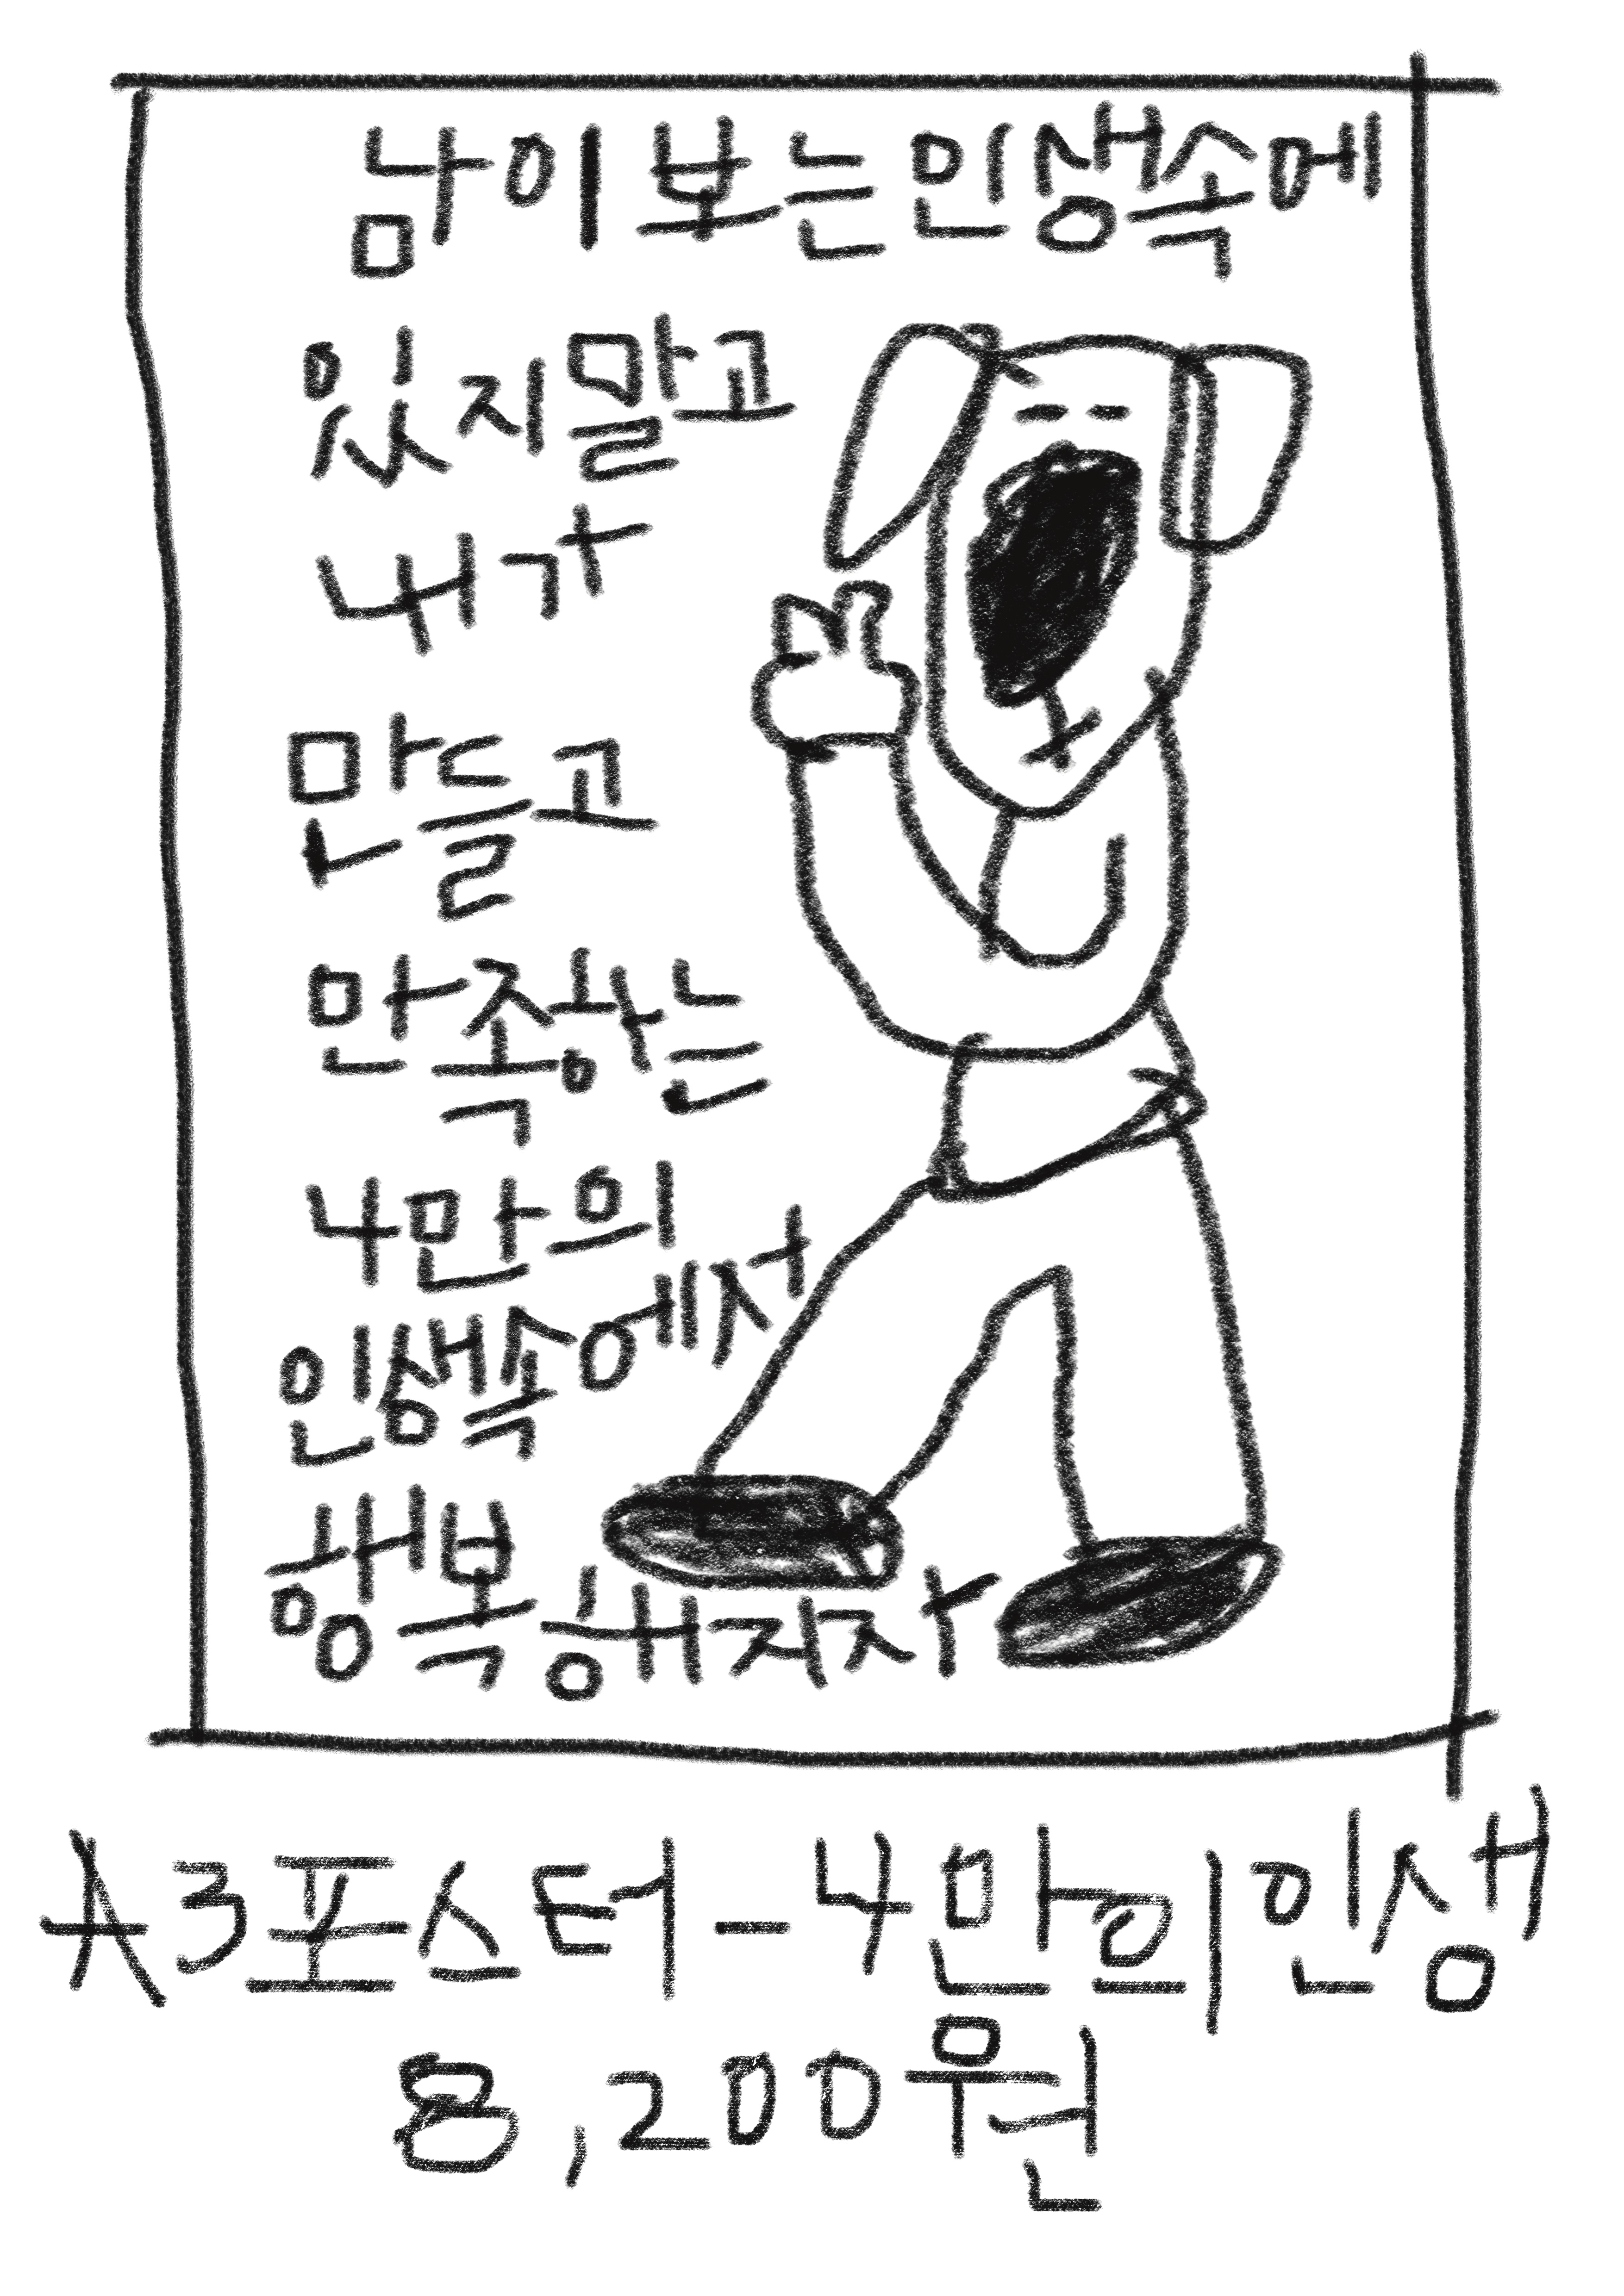 남이 보는 인생속에
있지말고
내가
만들고
만족하는
4만의
인생속에서
행복해지자
A3포스터-4만의인생
8,200원